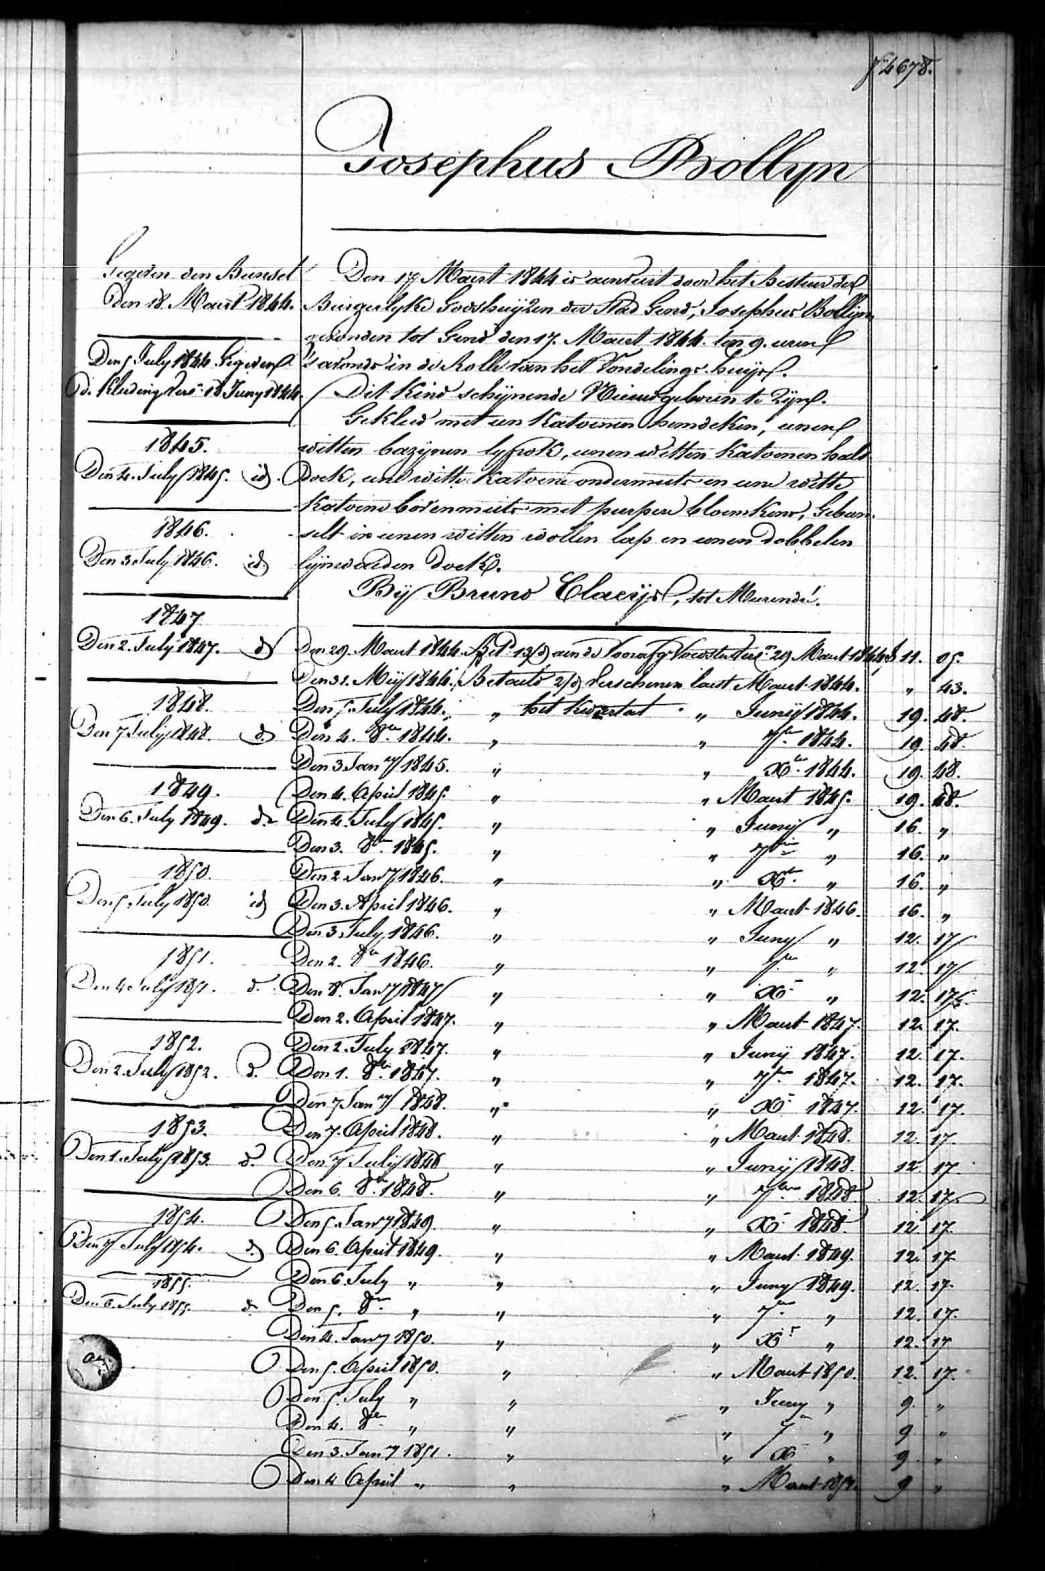 4678.
Josephus Bollyn
Gegeven den Bundsel
den 18. Maert 1844.
Den 5 July 1844 Gegeven
d. Kleeding Vers. 18 Juny 1844.
1845.
Den 4. July 1845. id.
1846.
Den 3 July 1846. id
1847
Den 2. July 1847. d
1848.
Den 7 July 1848. d
1849.
Den 6. July 1849. d.
1850.
Den 5 July 1850. id
1851.
Den 4 July 1851. d.
1852.
Den 2. July 1852. d.
1853.
Den 1. July 1853. d.
1854.
Den 7 July 1854. d
1855
Den 6. July 1855. d.
Den 17 Maert 1844 is aenveert door het Bestuer der
Burgerlyke Godshuyzen der Stad Gend, Josephus Bollyn
gevonden tot Gend den 17. Maert 1844. ten 9. uren
's avonds in de Rolle van het Vondelings-huys.
Dit Kind schynende Nieuwgeboren te Zyn.
Gekleed met een Katoenen hemdeken, eenen
witten bazynen lyfrok, eenen witten Katoenen hals
Doek, eene witte Katoene ondermuts en eene witte
Katoene bovenmuts met purpere bloemkens, Gebun-
selt in eenen witten wollen lap en eenen dobbelen
lynwaeden doek.
By Bruno Claeys, tot Meerendré.
Den 29. Maert 1844. Bet. 13/d aen de Voorafg. Voedster Vers. 29 Maert 1844 11. 05.
Den 31. Mey 1844. Betaelt 2/d Verschenen laest Maert 1844. " 43.
Den 5 July 1844. " het kwartael " Juny 1844. 19. 48.
Den 4. 8ber 1844. " " 7ber 1844. 19. 48
Den 3 Jany 1845. " " Xber 1844. 19. 48.
Den 4. April 1845. " " Maert 1845. 19. 48.
Den 4. July 1845. " " Juny " 16. "
Den 3. 8ber 1845. " " 7ber " 16. "
Den 2. Jany 1846. " " Xber " 16. "
Den 3. April 1846. " " Maert 1846. 16. "
Den 3 July 1846. " " Juny " 12. 17
Den 2. 8ber 1846. " " 7ber " 12. 17
Den 8. Jany 1847 " " Xber " 12. 17
Den 2. April 1847. " " Maert 1847. 12. 17.
Den 2. July 1847. " " Juny 1847. 12. 17.
Den 1. 8ber 1847. " " 7ber 1847. 12. 17.
Den 7 Jany 1848. " " Xber 1847. 12. 17.
Den 7. April 1848. " " Maert 1848. 12. 17.
Den 7 July 1848 " " Juny 1848. 12. 17.
Den 6. 8ber 1848. " " 7ber 1848. 12. 17.
Den 5 Jany 1849. " " Xber 1848. 12. 17.
Den 6. April 1849. " " Maert 1849. 12. 17.
Den 6 July " " " Juny 1849. 12. 17.
Den 5. 8ber " " " 7ber " 12. 17.
Den 4. Jany 1850. " " Xber " 12. 17
Den 5. April 1850. " " Maert 1850. 12. 17.
Den 5. July " " " Juny " 9. "
Den 4. 8ber " " " 7ber " 9. "
Den 3. Jany 1851. " " Xber " 9. "
Den 4 April " " " Maert 1851. 9 "